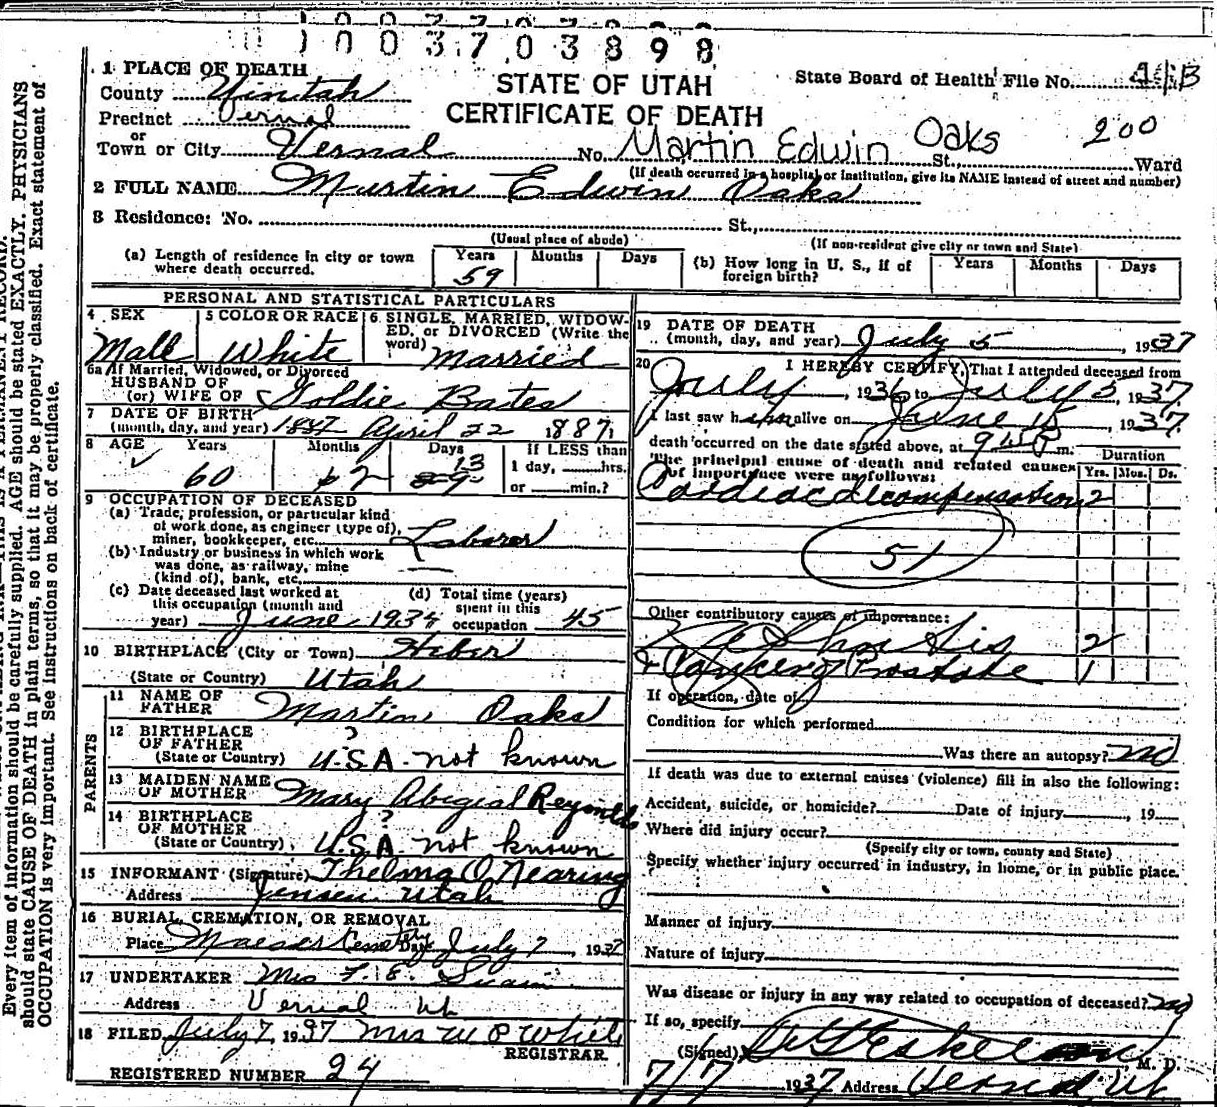 10037 03898
1 PLACE OF DEATH
STATE OF UTAH
State Board of Health File No.
County Uintah
CERTIFICATE OF DEATH
Precinct Vernal
or
Town or City Vernal No. Martin Edwin Oaks 200 St., Ward
(If death occurred in a hospital or institution, give its NAME instead of street and number)
2 FULL NAME Martin Edwin Oaks
3 Residence: No. St.,
(Usual place of abode) (If non-resident give city or town and State)
(a) Length of residence in city or town where death occurred. Years 59 Months Days
(b) How long in U. S., if of foreign birth? Years Months Days
PERSONAL AND STATISTICAL PARTICULARS
4 SEX Male
5 COLOR OR RACE White
6 SINGLE, MARRIED, WIDOWED, or DIVORCED (Write the word) Married
6a If Married, Widowed, or Divorced
HUSBAND OF
(or) WIFE OF Goldie Bates
7 DATE OF BIRTH
(month, day, and year) April 22 1887
8 AGE Years 60 Months 2 Days 13
If LESS than
1 day, hrs.
or min.?
9 OCCUPATION OF DECEASED
(a) Trade, profession, or particular kind
of work done, as engineer (type of),
miner, bookkeeper, etc. Laborer
(b) Industry or business in which work
was done, as railway, mine
(kind of), bank, etc.
(c) Date deceased last worked at
this occupation (month and
year) June 193
(d) Total time (years)
spent in this
occupation 45
10 BIRTHPLACE (City or Town) Heber
(State or Country) Utah
PARENTS
11 NAME OF
FATHER Martin Oaks
12 BIRTHPLACE
OF FATHER ?
(State or Country) U.S.A. not known
13 MAIDEN NAME
OF MOTHER Mary Abegial Reynolds
14 BIRTHPLACE
OF MOTHER ?
(State or Country) U.S.A. not known
15 INFORMANT (Signature) Thelma O. Nearing
Address Jensen Utah
16 BURIAL, CREMATION, OR REMOVAL
Place Maeser Cemetery Date July 7, 1937
17 UNDERTAKER Mrs
Address Vernal Ut
18 FILED July 7, 1937 Mrs W P White
REGISTRAR
REGISTERED NUMBER 24
19 DATE OF DEATH
(month, day, and year) July 5, 1937
20 I HEREBY CERTIFY, That I attended deceased from
July, 1936 to July 5, 1937.
I last saw him alive on June 15, 1937.
death occurred on the date stated above, at m.
The principal cause of death and related causes
of importance were as follows:
Duration
Yrs. Mos. Ds.
Cardiac decompensation 2
51
Other contributory causes of importance:
2
Prostate 1
If operation, date of
Condition for which performed
Was there an autopsy? no
If death was due to external causes (violence) fill in also the following:
Accident, suicide, or homicide? Date of injury, 19
Where did injury occur?
(Specify city or town, county and State)
Specify whether injury occurred in industry, in home, or in public place.
Manner of injury
Nature of injury
Was disease or injury in any way related to occupation of deceased? no
If so, specify
(Signed) M. D.
7/7 1937 Address Vernal, Ut.
Every item of information should be carefully supplied. AGE should be stated EXACTLY. PHYSICIANS
should state CAUSE OF DEATH in plain terms, so that it may be properly classified. Exact statement of
OCCUPATION is very important. See instructions on back of certificate.